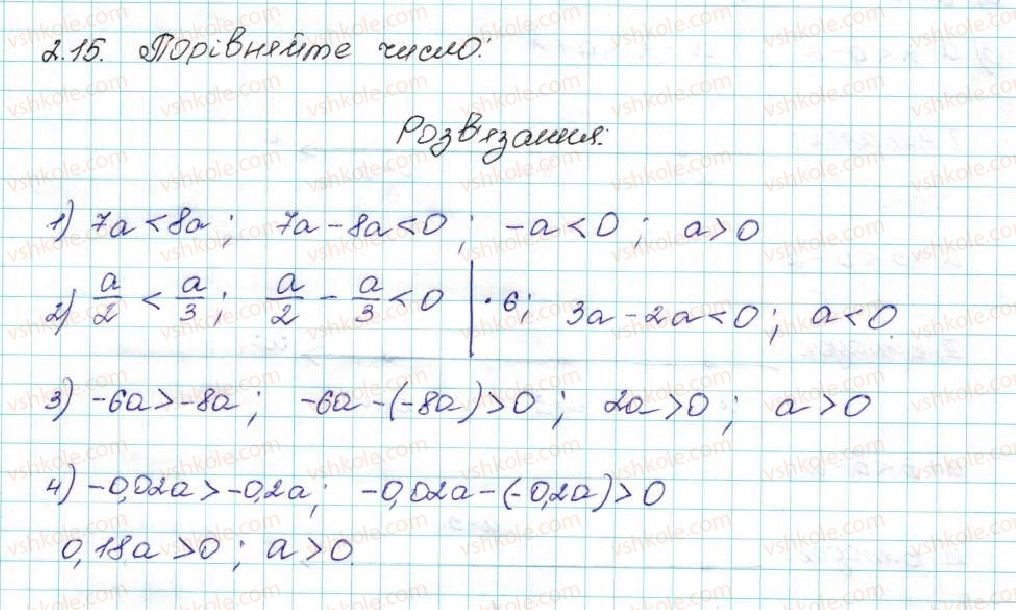 2.15. Порівняйте число:
Розв'язання:
1) 7a < 8a ; 7a - 8a < 0 ; -a < 0 ; a > 0
2) a/2 < a/3 ; a/2 - a/3 < 0 | · 6 ; 3a - 2a < 0 ; a < 0.
3) -6a > -8a ; -6a - (-8a) > 0 ; 2a > 0 ; a > 0
4) -0,02a > -0,2a ; -0,02a - (-0,2a) > 0
0,18a > 0 ; a > 0.